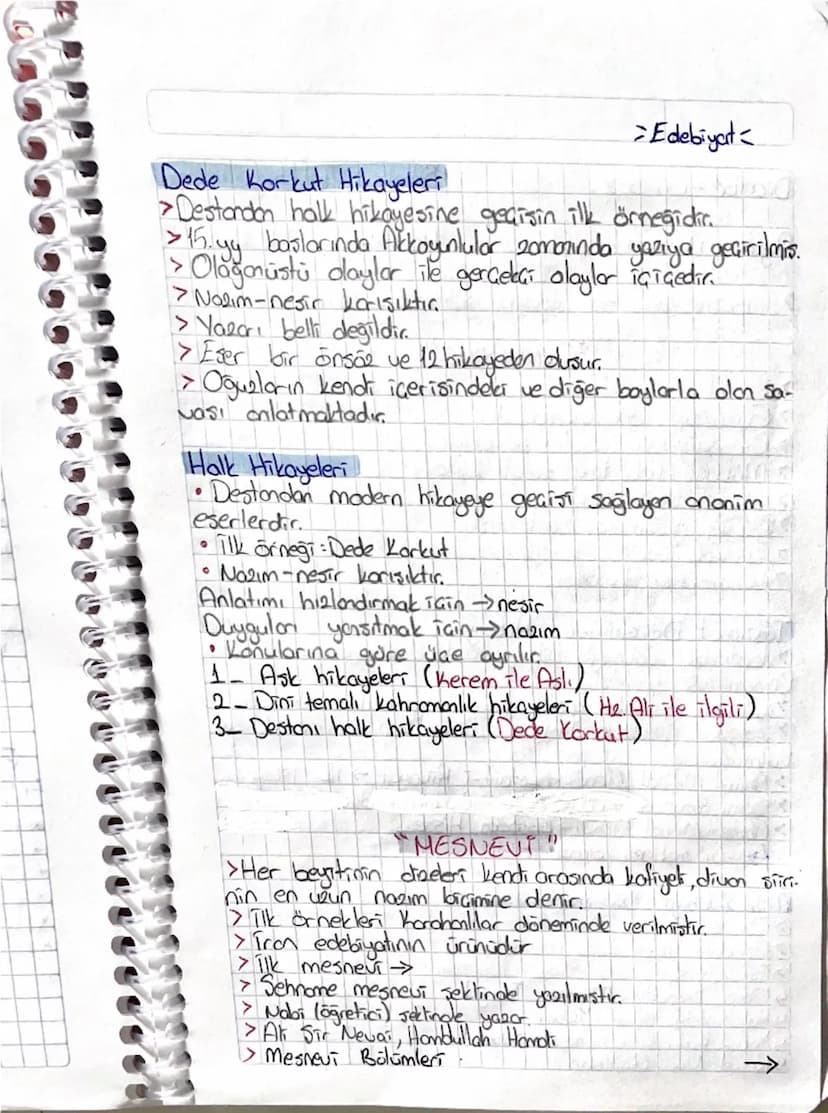 >Edebiyat<
Dede Korkut Hikayeleri
> Destandan halk hikayesine geçişin ilk örneğidir.
> 15.yy başlarında Akkoyunlular zamanında yazıya geçirilmiş.
> Olağanüstü olaylar ile gerçekçi olaylar iç içedir.
> Nazım-nesir karışıktır.
> Yazarı belli değildir.
> Eser bir önsöz ve 12 hikayeden oluşur.
> Oğuzların kendi içerisindeki ve diğer boylarla olan sa-
vaşı anlatmaktadır.
Halk Hikayeleri
• Destandan modern hikayeye geçişi sağlayan anonim
eserlerdir.
• İlk örneği: Dede Korkut
• Nazım-nesir karışıktır.
Anlatımı hızlandırmak için → nesir
Duyguları yansıtmak için → nazım
• Konularına göre üçe ayrılır.
1- Aşk hikayeleri (Kerem ile Aslı)
2- Dini temalı kahramanlık hikayeleri (Hz. Ali ile ilgili)
3- Destanı halk hikayeleri (Dede Korkut)
"MESNEVİ"
> Her beytinin dizeleri kendi arasında kafiyeli, divan şiiri-
nin en uzun nazım biçimine denir.
> İlk örnekleri Karahanlılar döneminde verilmiştir.
> İran edebiyatının ürünüdür
> İlk mesnevi →
> Şehname mesnevi şeklinde yazılmıştır.
> Nabi (öğretici) şeklinde yazar.
> Ali Şir Nevai, Hamdullah Hamdi
> Mesnevi Bölümleri
→